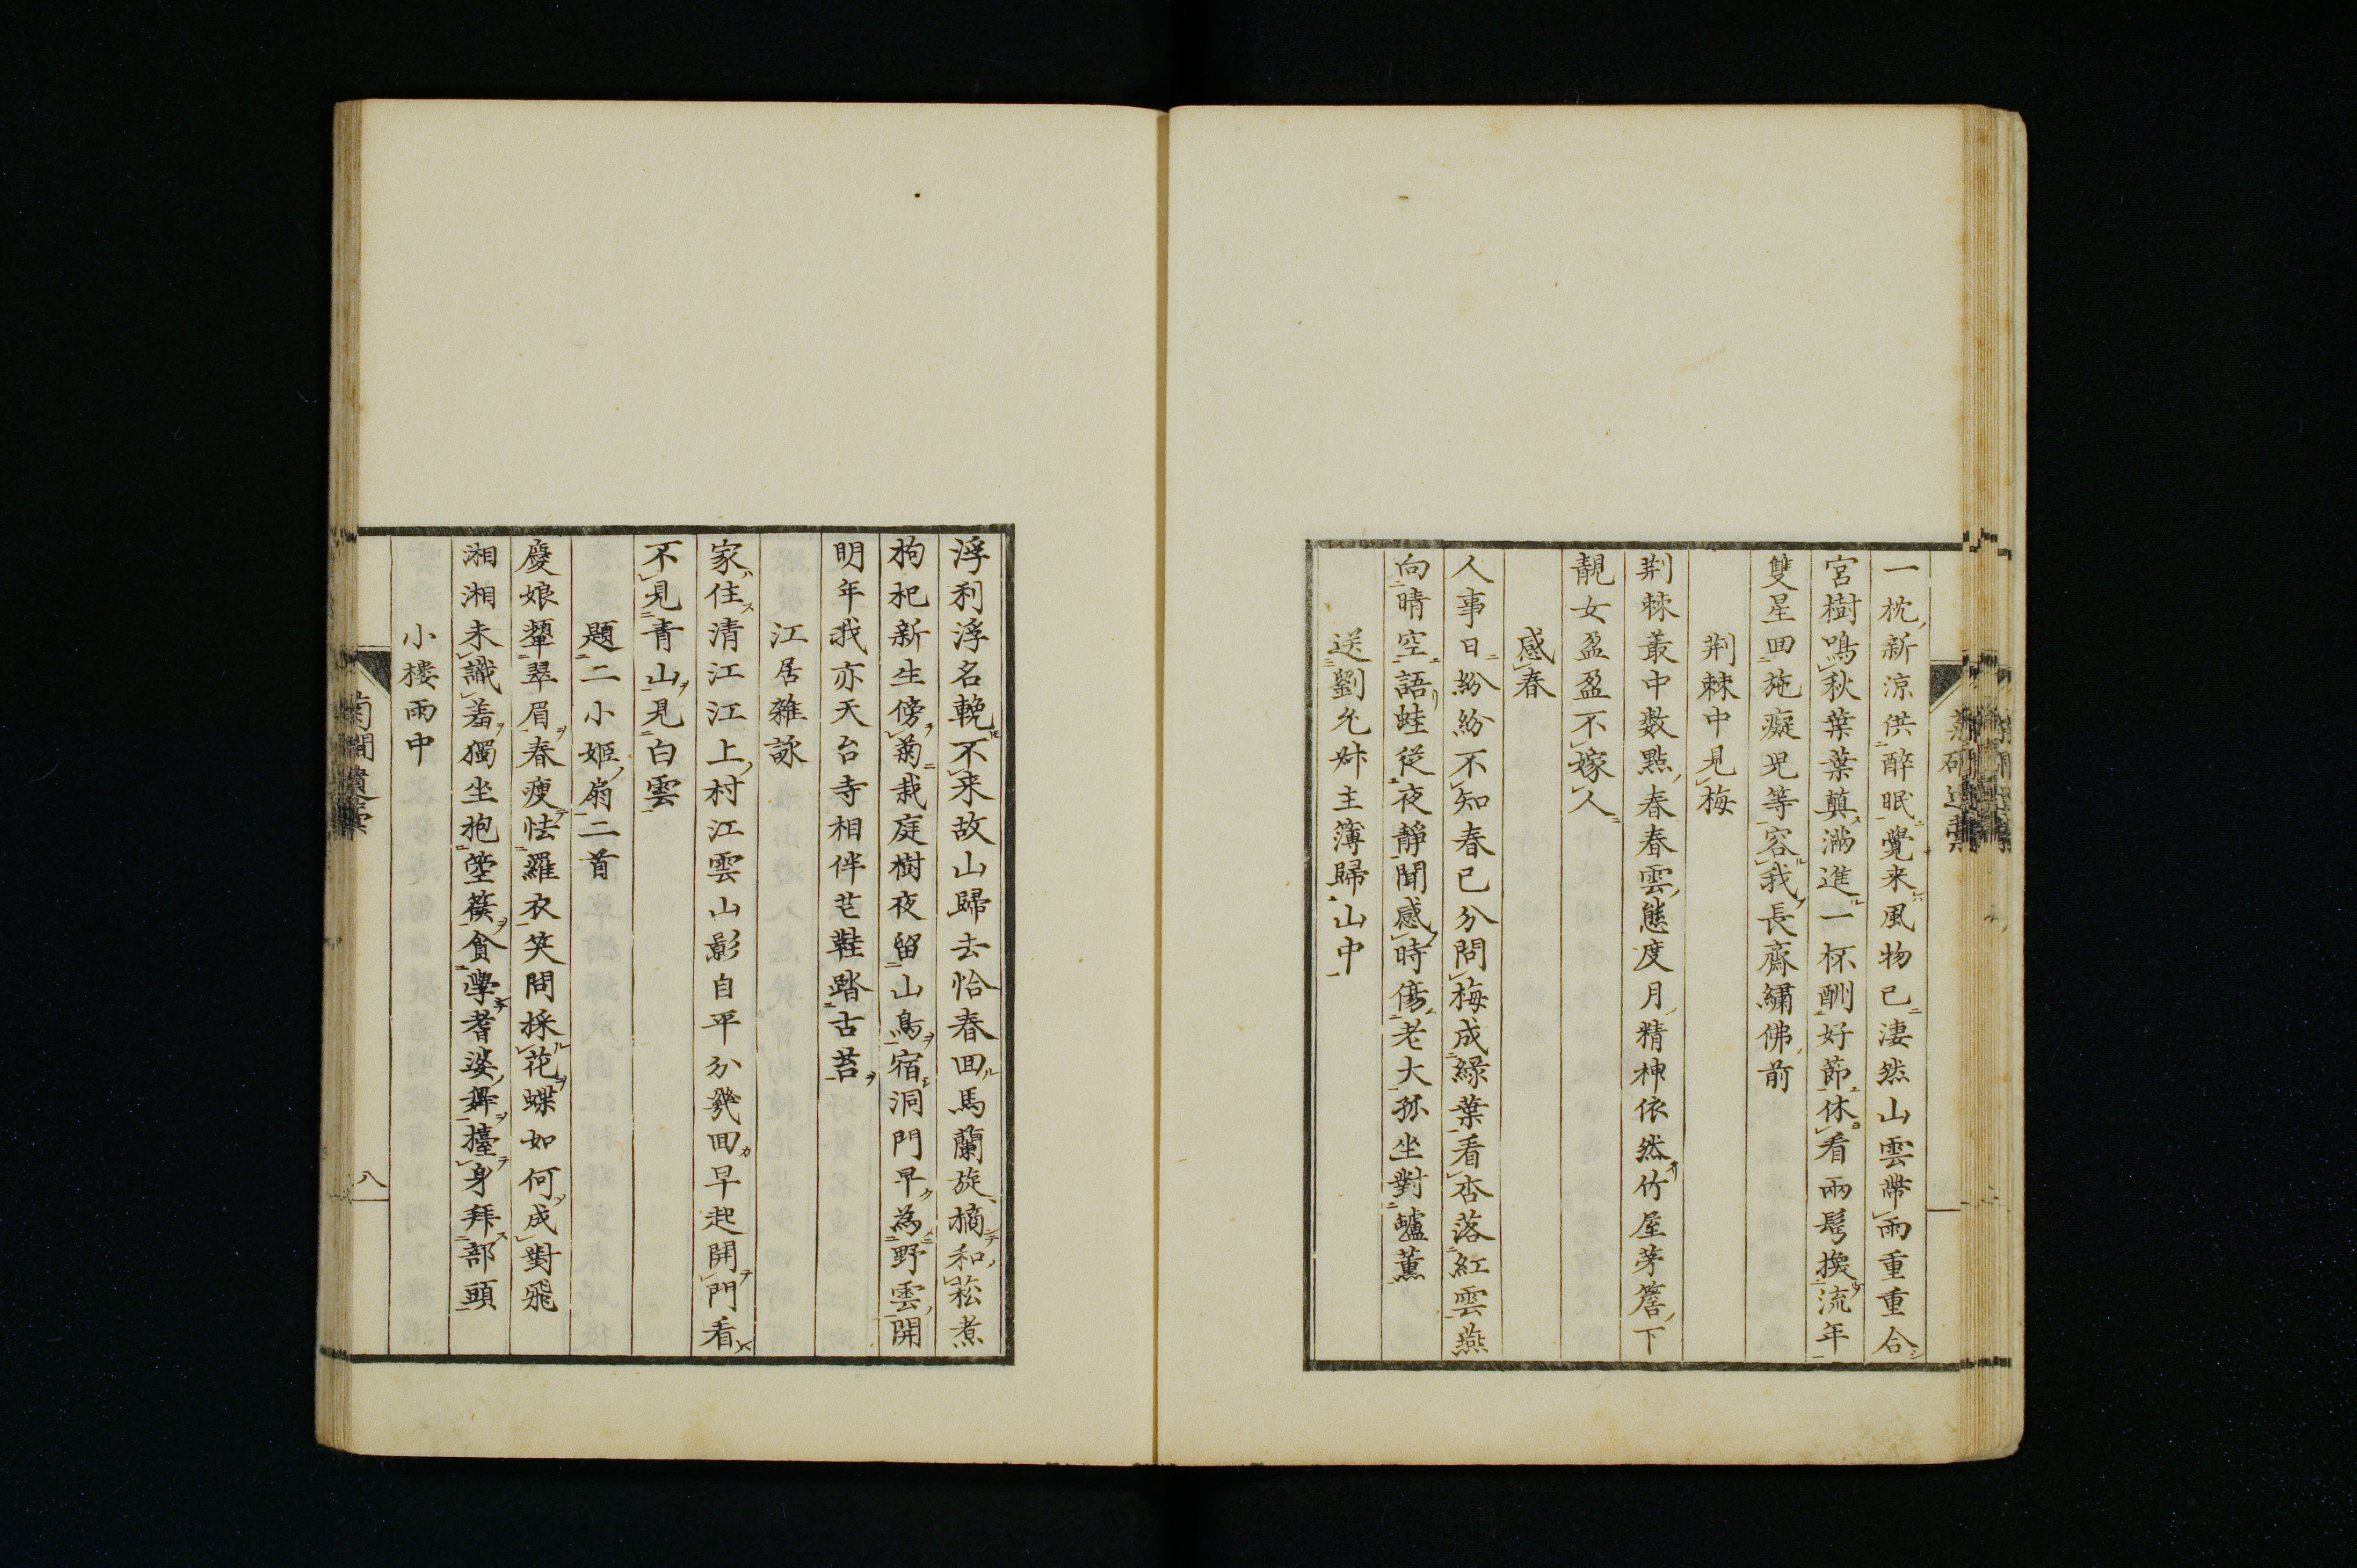 一枕新涼供醉眠覺来風物已淒然山雲帶雨重重合
宮樹鳴秋葉葉顛滿進一杯酬好節休看兩鬂換流年
雙星回施癡児等容我長齋繡佛前
荆棘中見梅
荆棘叢中数點春春雲態度月精神依然竹屋茅簷下
靚女盈盈不嫁人
感春
人事日紛紛不知春已分問梅成綠葉看杏落紅雲燕
向晴空語蛙從夜靜聞感時傷老大孤坐對罏薰
送劉允叔主簿歸山中
浮利浮名輓不来故山歸去恰春回馬蘭旋摘和菘煮
枸杞新生傍菊栽庭樹夜留山鳥宿洞門早為野雲開
明年我亦天台寺相伴芒鞋踏古苔
江居雜詠
家住清江江上村江雲山影自平分幾回早起開門看
不見青山見白雲
題二小姬扇二首
慶娘顰翠眉春瘦怯羅衣笑問採花蝶如何成對飛
湘湘未識羞獨坐抱箜篌貪學耆婆舞擡身拜部頭
小樓雨中
菊磵遺稾
八